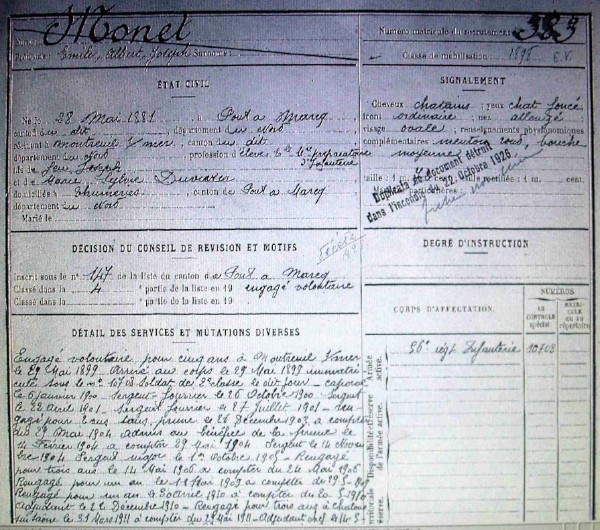 Nom : Monel
Prénoms : Emile, Albert Joseph Surnoms :
Numéro matricule du recrutement : 383
Classe de mobilisation 1898 E.V.
ÉTAT CIVIL
Né le 28 Mai 1881, à Pont à Marcq
canton du dit, département du Nord
à Montreuil s/mer, canton du dit
département du, profession d'élève Ecle Mre préparatoire
d'Infanterie
fils de feu Joseph
et de Marie, Sylvie
domiciliés à Thumeries, canton de Pont à Marcq
département du Nord
Marié le
SIGNALEMENT
Cheveux chatains; yeux chat. foncé
front ordinaire; nez allongé
visage ovale; renseignements physionomiques
complémentaires menton rond, bouche
moyenne
Duplicata du document détruit
dans l'incendie du 22 Octobre 1926
DÉCISION DU CONSEIL DE REVISION ET MOTIFS
Inscrit sous le n° 147 de la liste du canton de Pont à Marcq
Classé dans la 4e partie de la liste en 19 engagé volontaire
Classé dans la e partie de la liste en 19
DEGRÉ D'INSTRUCTION
DÉTAIL DES SERVICES ET MUTATIONS DIVERSES
Engagé volontaire pour cinq ans à Montreuil s/mer
le 29 Mai 1899. Arrivé au corps le 29 Mai 1899 immatri-
culé sous le n° 10708 Soldat de 2e classe le dit jour - caporal
le 6 janvier 1900 - Sergent-fourrier le 26 Octobre 1900 - Sergent
le 22 Avril 1901 - Sergent fourrier le 27 Juillet 1901 - Ren-
gagé pour 2 ans sans prime le 26 Décembre 1903, à compter
du 29 Mai 1904 Admis au bénéfice de la prime le
14 Février 1904 à compter 29 Mai 1904 Sergent le 14 Novem-
bre 1904 Sergent major le 1er Octobre 1905 - Rengagé
pour trois ans le 14 Mai 1906 à compter du 24 Mai 1906
Rengagé pour un an le 1 Mai 1909 à compter du
Rengagé pour un an le 30 Avril 1910 à compter du
Adjudant le 22 Décembre 1910 - Rengagé pour trois ans à Chalon
sur Saone le 31 Mars 1911 à compter du 29 Mai 1911 - Adjudant chef le
CORPS D'AFFECTATION.
NUMÉROS
AU CONTRÔLE spécial.
MATRICULE ou au répertoire
Armée active.
56e régt Infanterie 10708
Disponibilité et réserve de l'armée active.